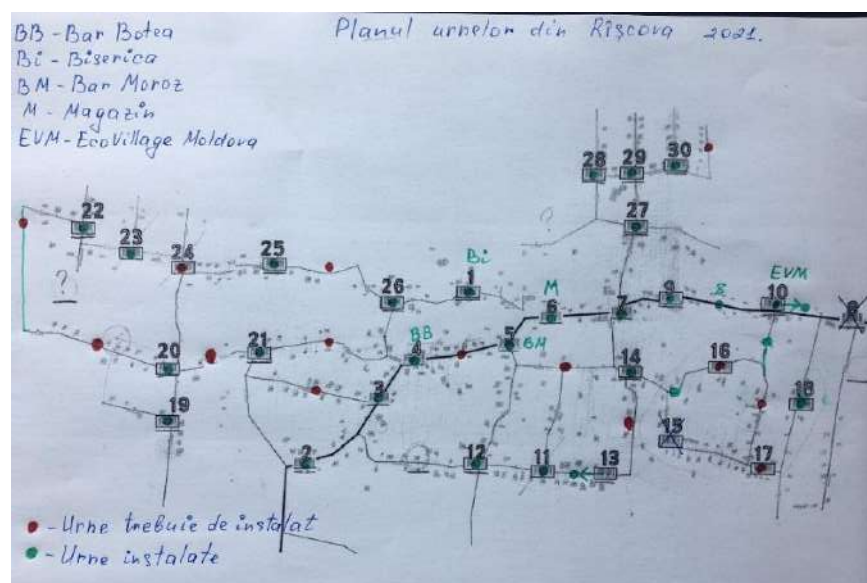 BB - Bar Botea
Bi - Biserica
BM - Bar Moroz
M - Magazin
EVM - EcoVillage Moldova
Planul urnelor din Rîșcova 2021.
28 29 30
27
22
23
24
25
26
Bi
1
M
6
7
9
8
EVM
10
8
BB
4
5
BM
20
21
3
14
16
18
19
2
12
11
13
15
17
?
?
- Urne trebuie de instalat
- Urne instalate